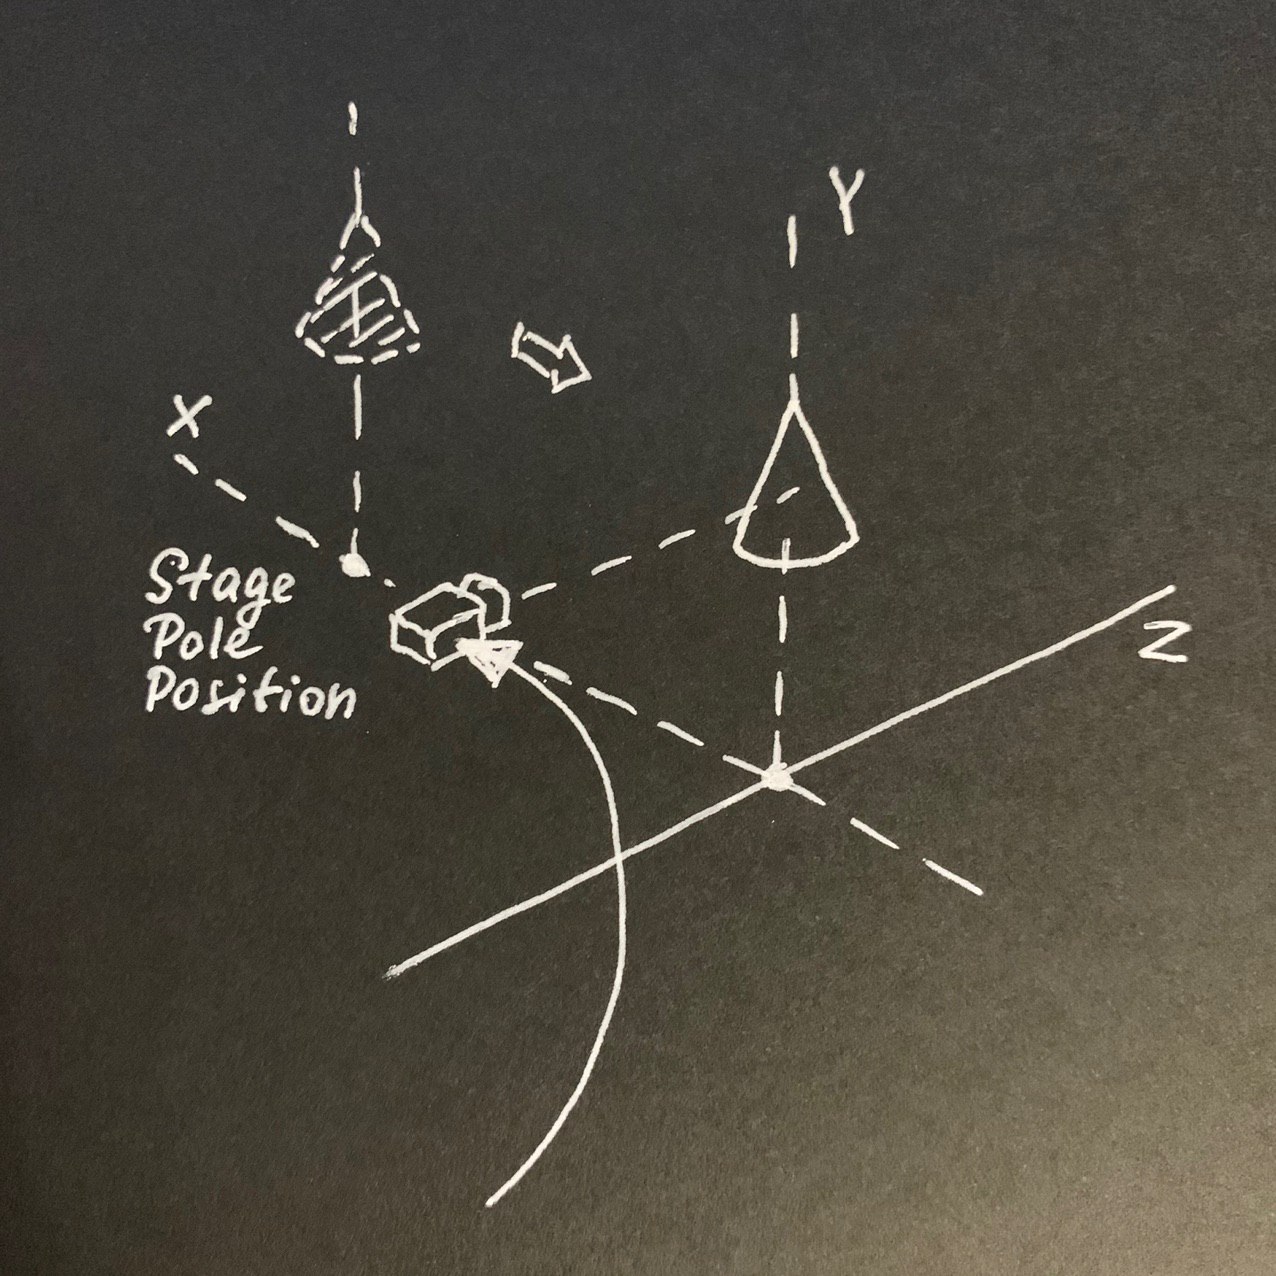 Y
X
Stage
Pole
Position
Z